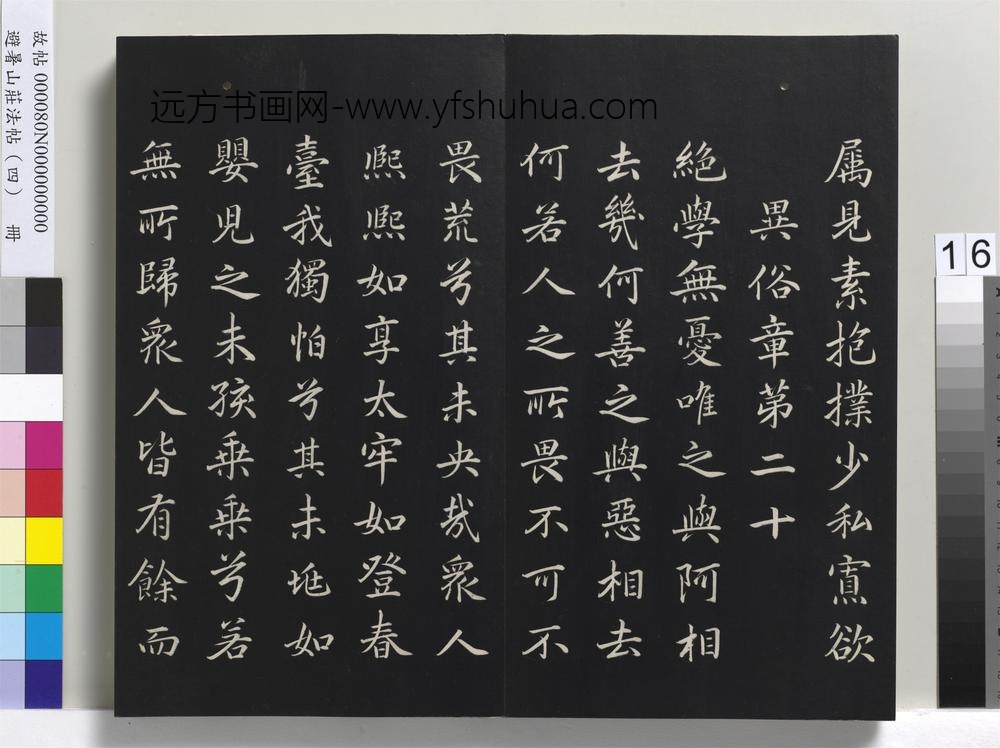 属見素抱撲少私寡欲
異俗章第二十
絕學無憂唯之與阿相
去幾何善之與惡相去
何若人之所畏不可不
畏荒兮其未央哉衆人
熙熙如享太牢如登春
臺我獨怕兮其未兆如
嬰兒之未孩乗乗兮若
無所歸衆人皆有餘而
远方书画网-www.yfshuhua.com
故帖 000080N000000000
避暑山莊法帖（四） 冊
16